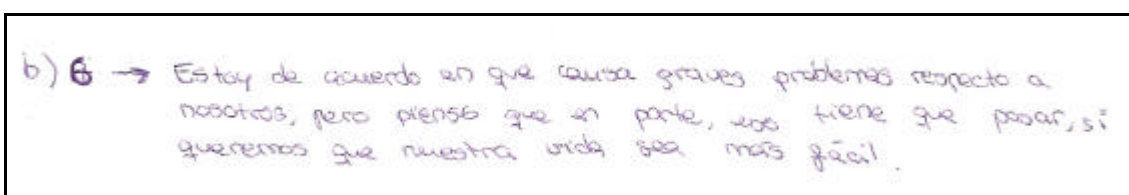 b) 6 → Estoy de acuerdo en que causa graves problemas respecto a
nosotros, pero pienso que en parte, eso tiene que pasar, si
queremos que nuestra vida sea más fácil.